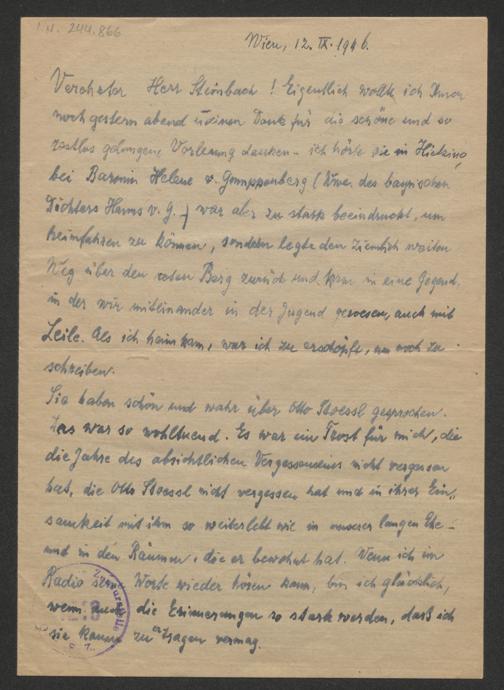 I.N. 244.866
Wien, 12. IX. 1946.
Verehrter Herr Steinbach! Eigentlich wollte ich Ihnen
noch gestern abend meinen Dank für die schöne und so
restlos gelungene Vorlesung danken – ich hörte sie in Hietzing,
bei Baronin Helene v. Gumppenberg (Wwe. des bayrischen
Dichters Hanns v. G.) war aber zu stark beeindruckt, um
heimfahren zu können, sondern legte den ziemlich weiten
Weg über den roten Berg zurück und kam in eine Gegend,
in der wir miteinander in der Jugend gewesen, auch mit
Leile. Als ich heimkam, war ich zu erschöpft, um noch zu
schreiben.
Sie haben schön und wahr über Otto Stoessl gesprochen.
Das war so wohltuend. Es war ein Trost für mich, die
die Jahre des absichtlichen Vergessenseins nicht vergessen
hat, die Otto Stoessl nicht vergessen hat und in ihrer Ein-
samkeit mit ihm so weiterlebt wie in unserer langen Ehe –
und in den Räumen, die er bewohnt hat. Wenn ich im
Radio seine Worte wieder hören kann, bin ich glücklich,
wenn auch die Erinnerungen so stark werden, daß ich
sie kaum zu ertragen vermag.
Zensurstelle